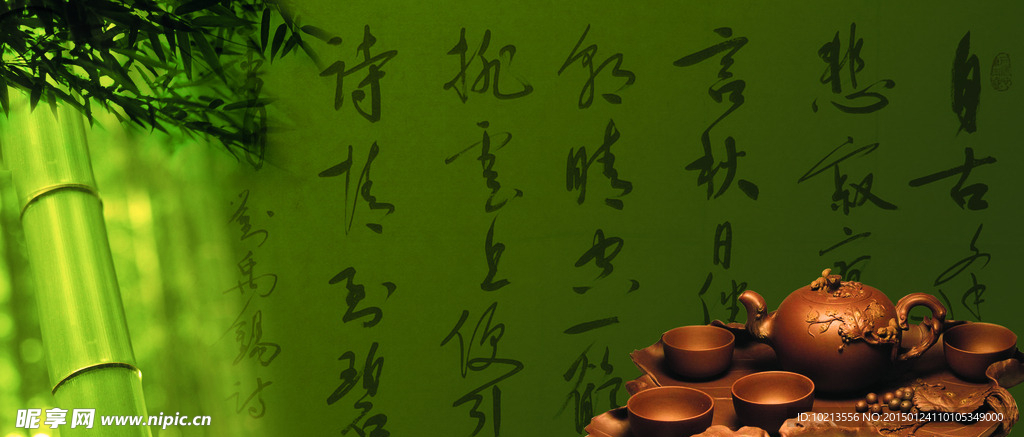 自古逢
悲寂寥
言秋日勝
朝晴空一鶴
排雲上便引
詩情到碧
劉禹錫詩
昵享网 www.nipic.cn
ID:10213556 NO:20150124110105349000